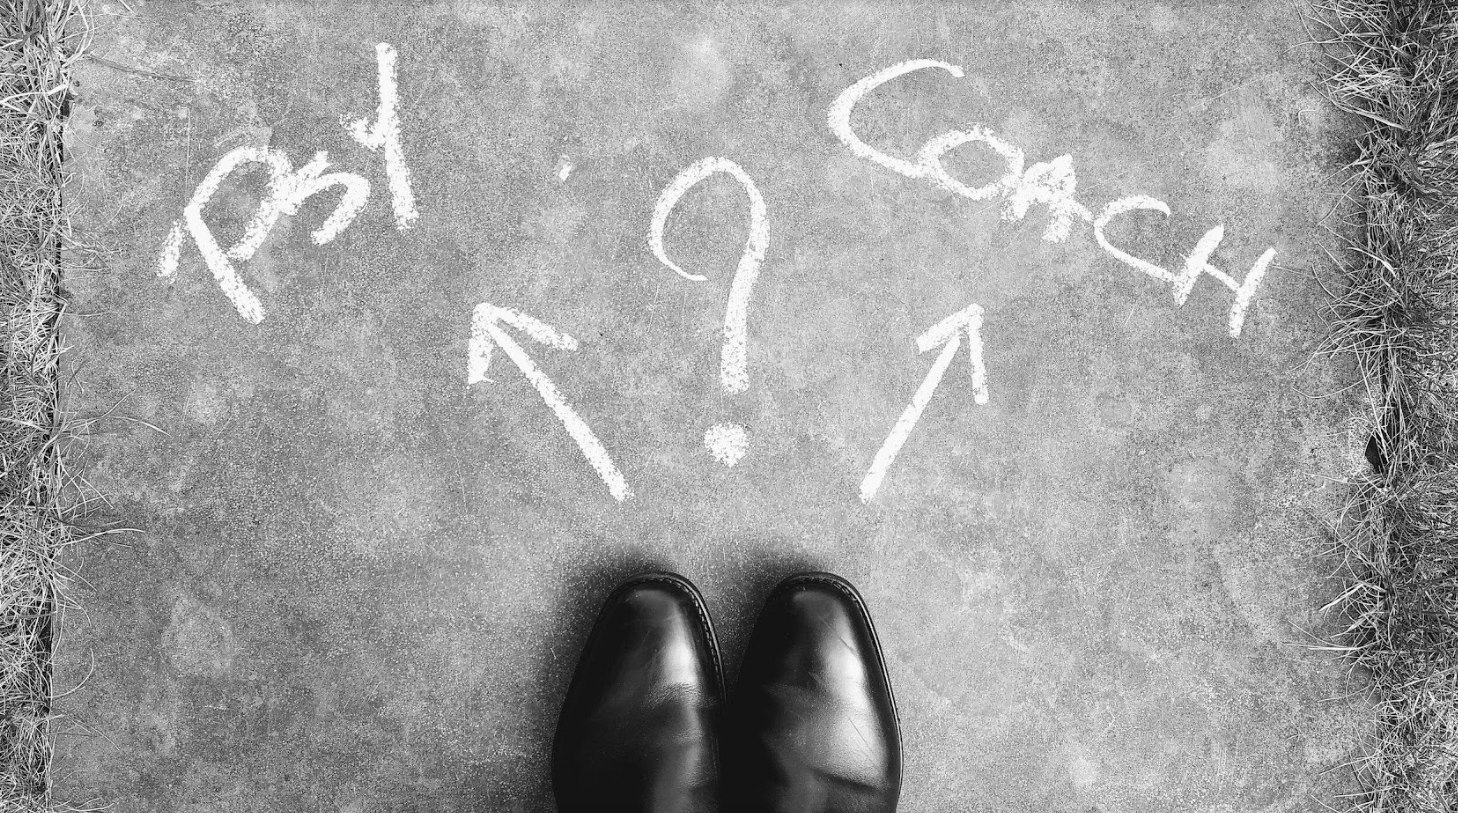 PSY
?
COACH